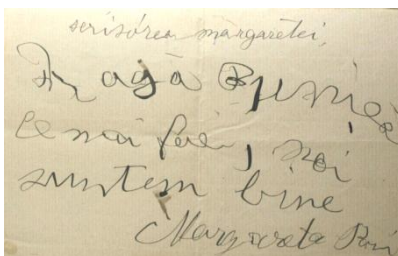 scrisórea margaretei,
Dragă Bunica
ce mai faci, noi
suntem bine
Margareta